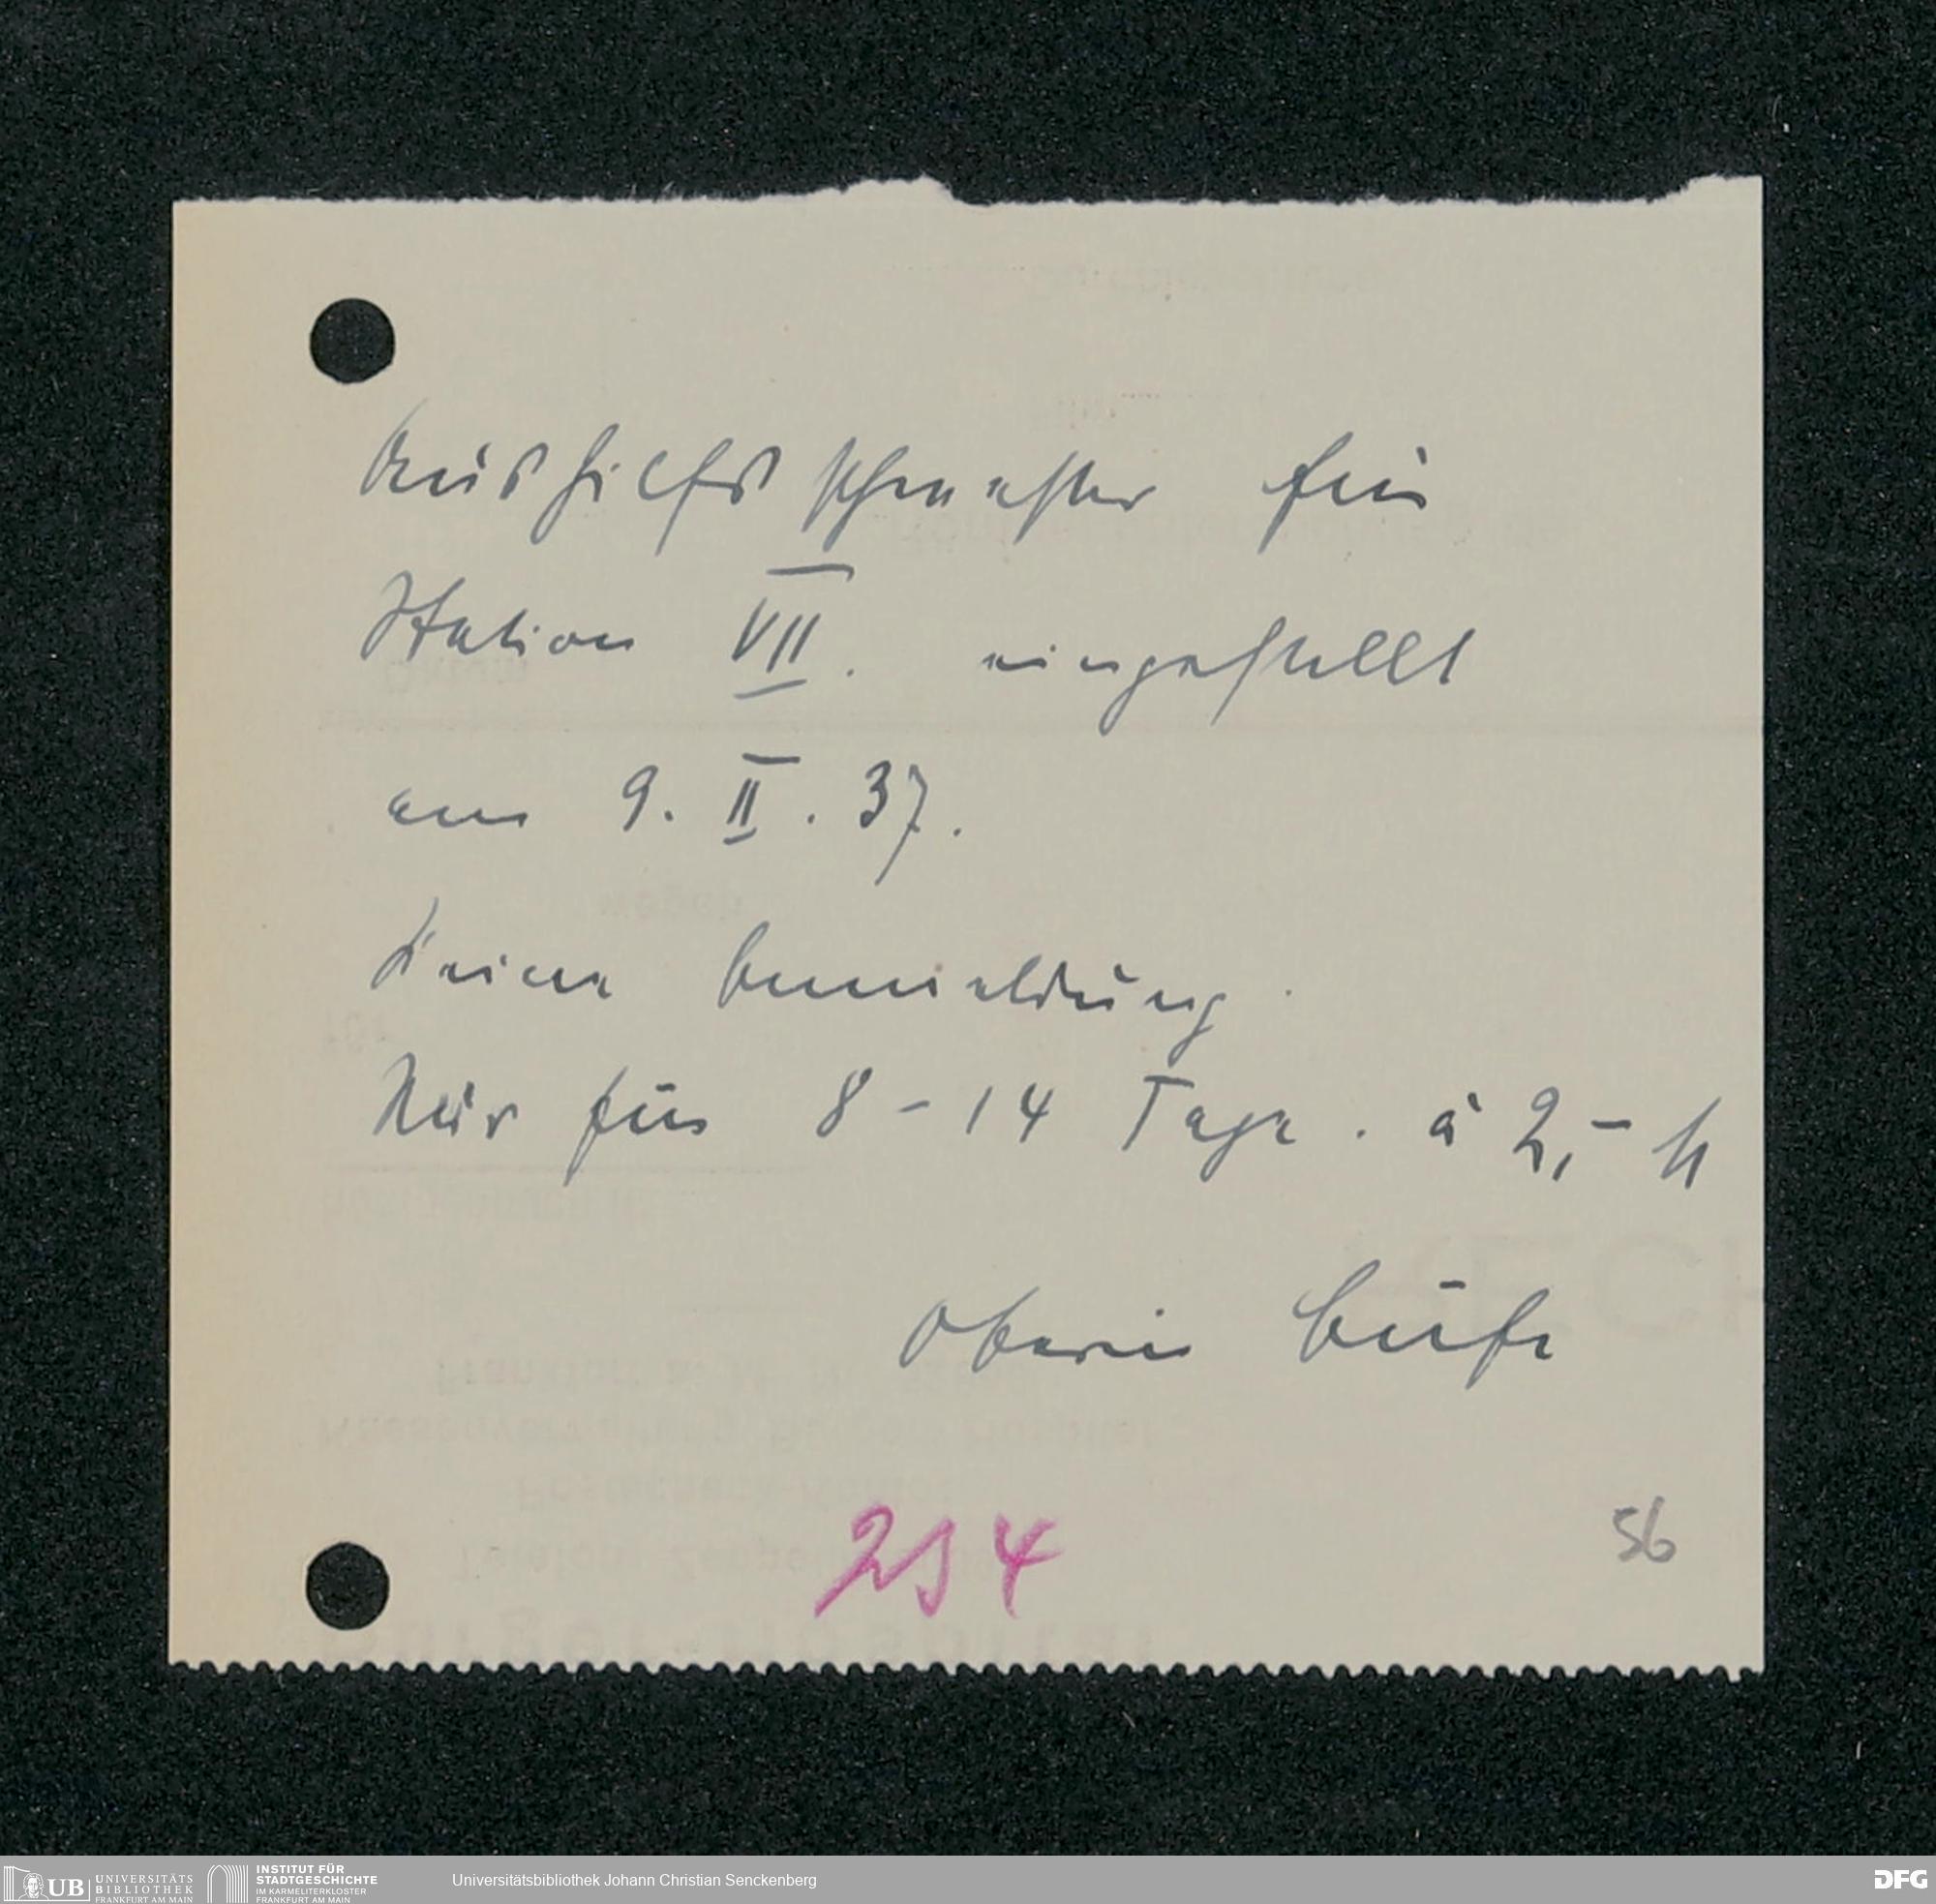 Aushilfsschwester für
Station VII. eingestellt
am 9. II. 37.
Keine Anmeldung.
Nur für 8 – 14 Tage. à 2,– M
Oberin
254
56
UB UNIVERSITÄTS BIBLIOTHEK FRANKFURT AM MAIN
INSTITUT FÜR STADTGESCHICHTE IM KARMELITERKLOSTER FRANKFURT AM MAIN
Universitätsbibliothek Johann Christian Senckenberg
DFG